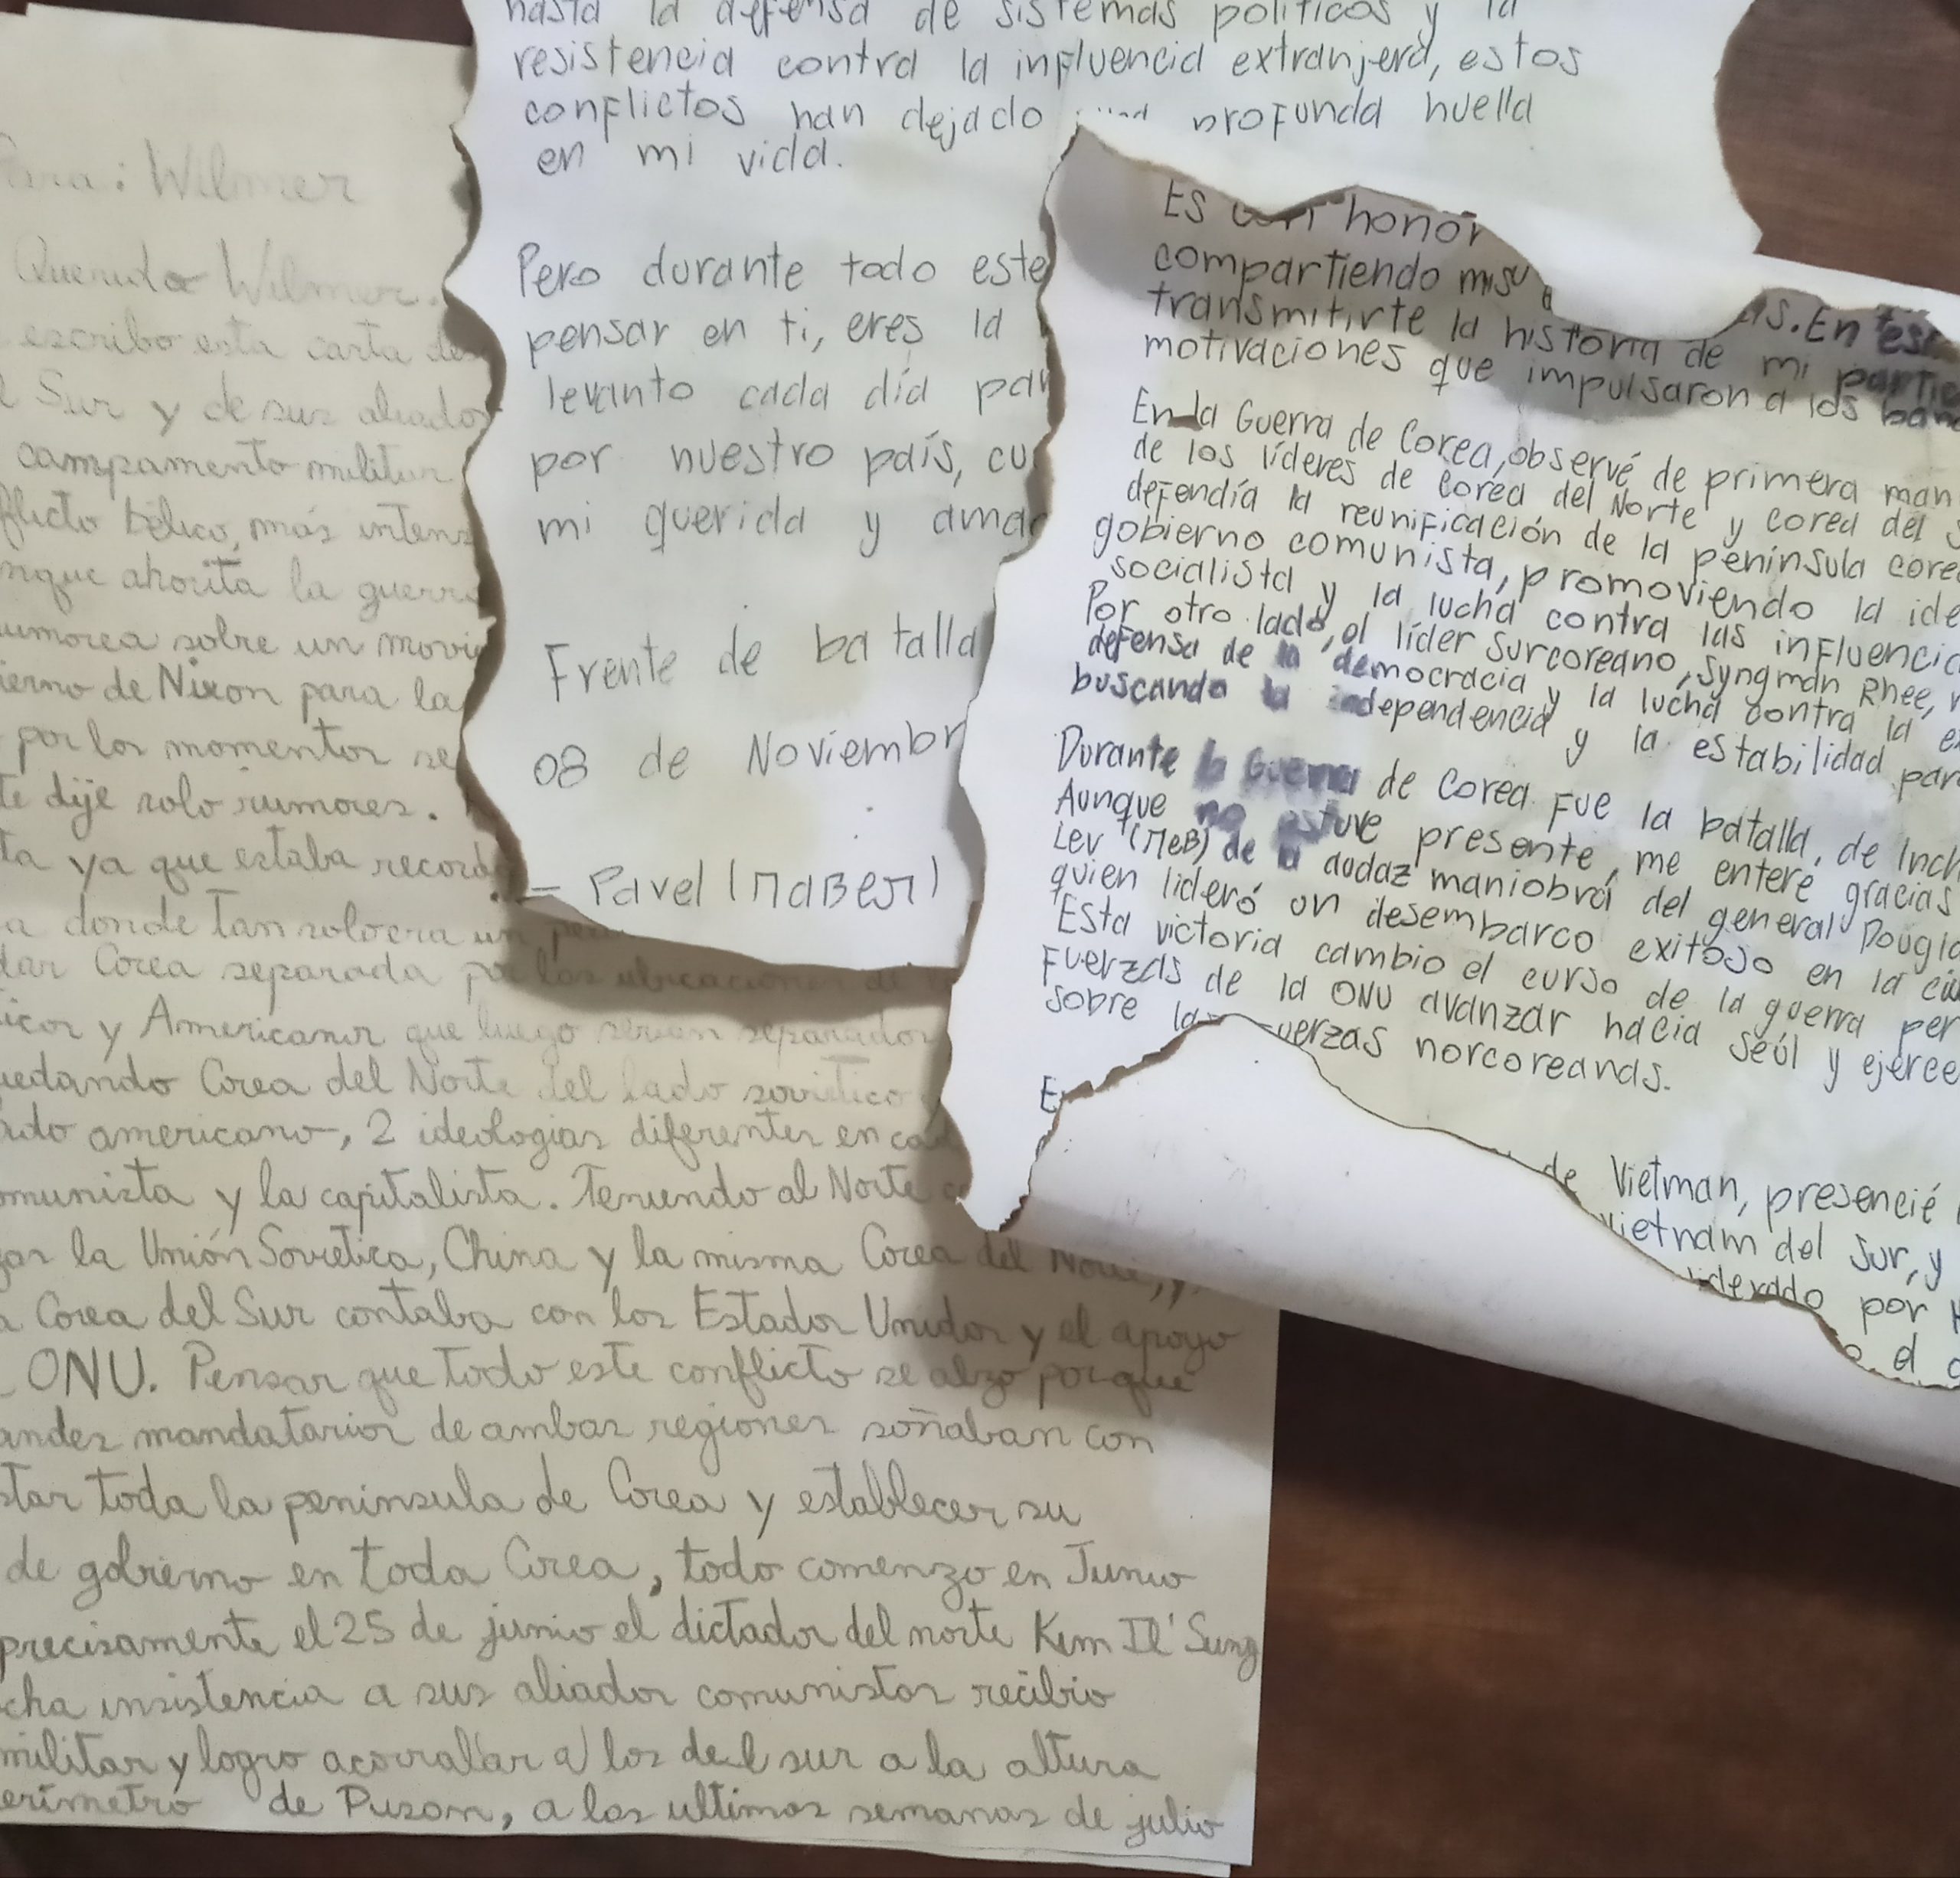 Para: Wilmer
Querido Wilmer.
escribo esta carta de
l Sur y de sus aliados
campamento militar
flicto bélico, más intens
nque ahorita la guerra
umorea sobre un movi
ierno de Nixon para la
por los momentos se
te dije solo rumores.
ta ya que estaba recorda
a donde tan solo era un pe
dar Corea separada por las ubicaciones de
icos y Americanos que luego serian separados
uedando Corea del Norte del lado sovietico
ado americano, 2 ideologias diferentes en ca
omunista y la capitalista. Teniendo al Norte
gar la Unión Sovietica, China y la misma Corea del Norte, y
a Corea del Sur contaba con los Estados Unidos y el apoyo
ONU. Pensar que todo este conflicto se alzo porque
andes mandatarios de ambas regiones soñaban con
star toda la peninsula de Corea y establecer su
de gobierno en toda Corea, todo comenzo en Junio
precisamente el 25 de junio el dictador del norte Kim Il' Sung
cha insistencia a sus aliados comunistas recibio
militar y logro acorralar a los del sur a la altura
erimetro de Pusan, a las ultimas semanas de julio
hasta la defensa de sistemas políticos y la
resistencia contra la influencia extranjera, estos
conflictos han dejado una profunda huella
en mi vida.
Pero durante todo este
pensar en ti, eres la
levanto cada día par
por nuestro país, cu
mi querida y amad
Frente de batalla
08 de Noviembr
- Pavel (Павел)
Es con honor
compartiendo mis as. En est
transmitirte la historia de mi partic
motivaciones que impulsaron a los band
En la Guerra de Corea, observé de primera man
de los líderes de Corea del Norte y Corea del S
defendía la reunificación de la península corea
gobierno comunista, promoviendo la ide
socialista y la lucha contra las influencia
Por otro lado, el líder surcoreano, Syngman Rhee,
defensa de la democracia y la lucha contra la e
buscando la independencia y la estabilidad par
Durante la Guerra de Corea Fue la batalla, de Inch
Aunque no estuve presente, me enteré gracias
Lev (Лев) de la audaz maniobra del general Dougla
quien lideró un desembarco exitoso en la ciu
Esta victoria cambio el curso de la guerra per
Fuerzas de la ONU avanzar hacia Seúl y ejerce
sobre las fuerzas norcoreanas.
E
de Vietman, presencié
vietnam del sur, y
liderado por H
o el c